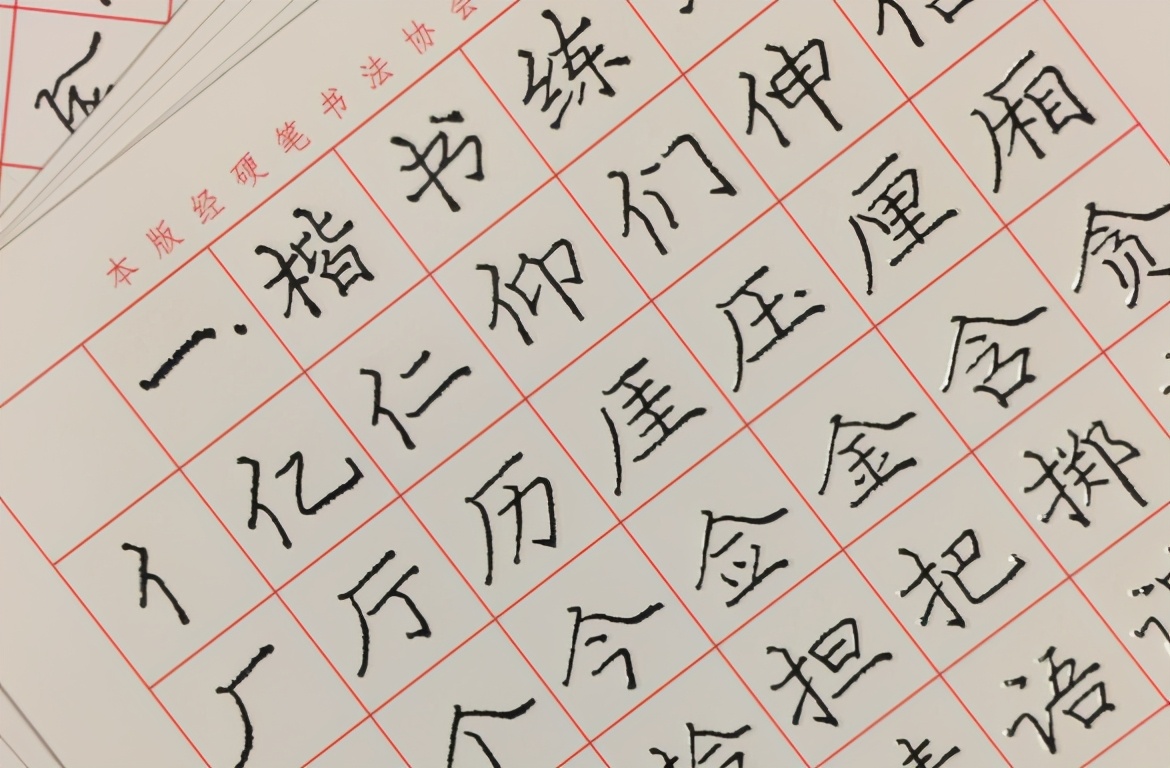 本版经硬笔书法协会
一.楷书练
亻亿仁仰们伸
厂厅历厓压厘厢
今佥金含贪
担把掷
语